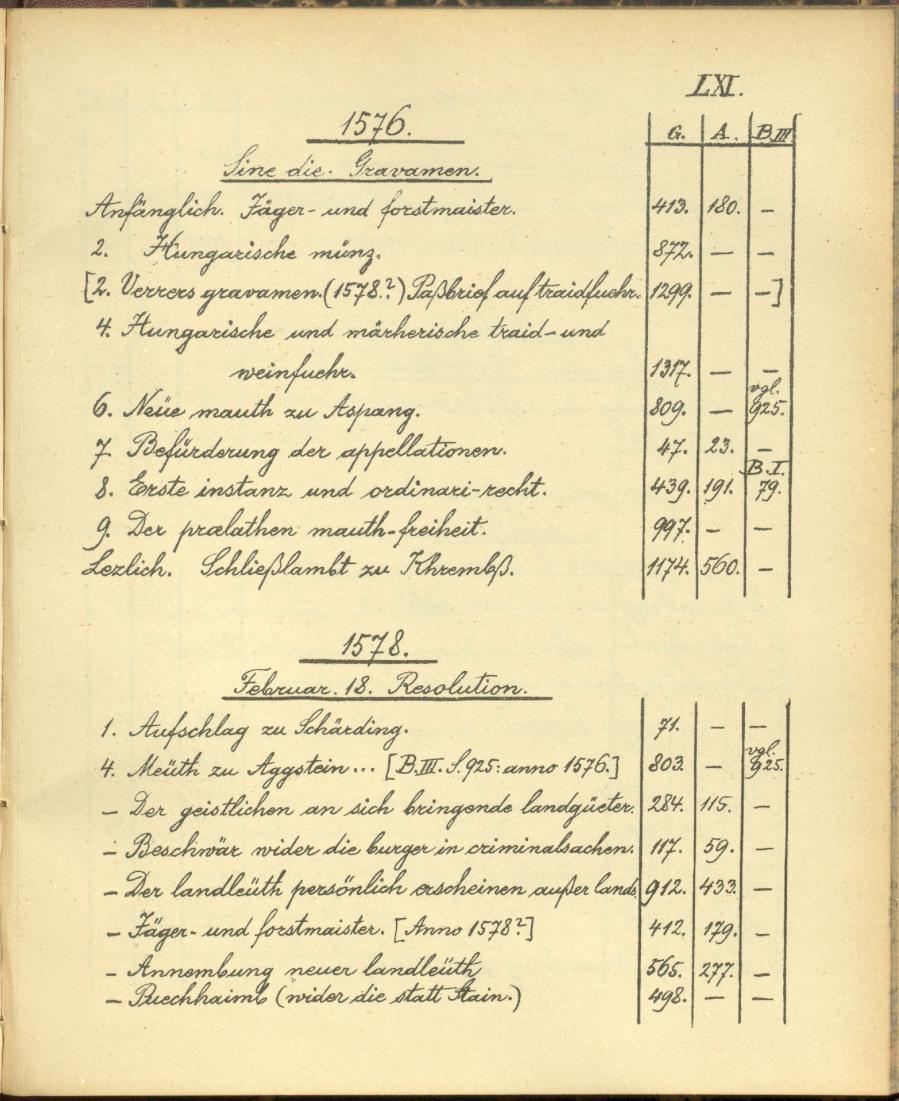 LXI.
1576. G. A. B.III
Sine die. Gravamen.
Anfänglich. Jäger- und forstmaister. 413. 180. –
2. Hungarische münz. 872. – –
[2. Verrers gravamen. (1578.?) Paßbrief auf traidfuehr. 1299. – –]
4. Hungarische und märherische traid- und
weinfuehr. 1317. – –
6. Neüe mauth zu Aspang. 809. – vgl. 925.
7. Befürderung der appellationen. 47. 23. –
8. Erste instanz und ordinari-recht. 439. 191. B.I. 79.
9. Der prælathen mauth-freiheit. 997. – –
Lezlich. Schließlambt zu Khrembß. 1174. 560. –
1578.
Februar. 18. Resolution.
1. Aufschlag zu Schärding. 71. – –
4. Meüth zu Aggstein... [B.III. S. 925: anno 1576.] 803. – vgl. 925.
– Der geistlichen an sich bringende landgüeter. 284. 115. –
– Beschwär wider die burger in criminalsachen. 117. 59. –
– Der landleüth persönlich erscheinen außer lands 912. 433. –
– Jäger- und forstmaister. [Anno 1578?] 412. 179. –
– Annembung neuer landleüth 565. 277. –
– Puechhaimb (wider die statt Stain.) 498. – –